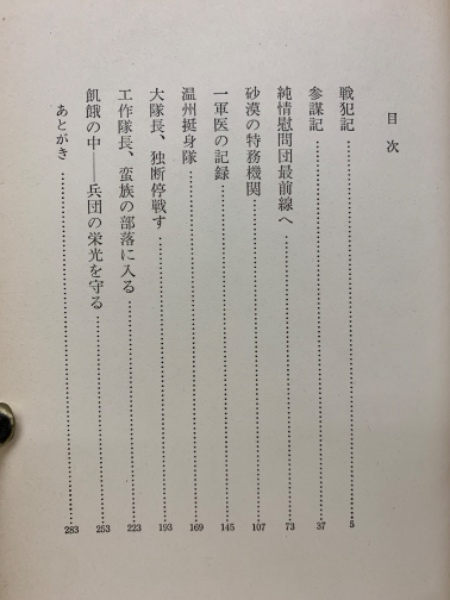 目次
戦犯記……5
参謀記……37
純情慰問団最前線へ……73
砂漠の特務機関……107
一軍医の記録……145
温州挺身隊……169
大隊長、独断停戦す……193
工作隊長、蛮族の部落に入る……223
飢餓の中――兵団の栄光を守る……253
あとがき……283